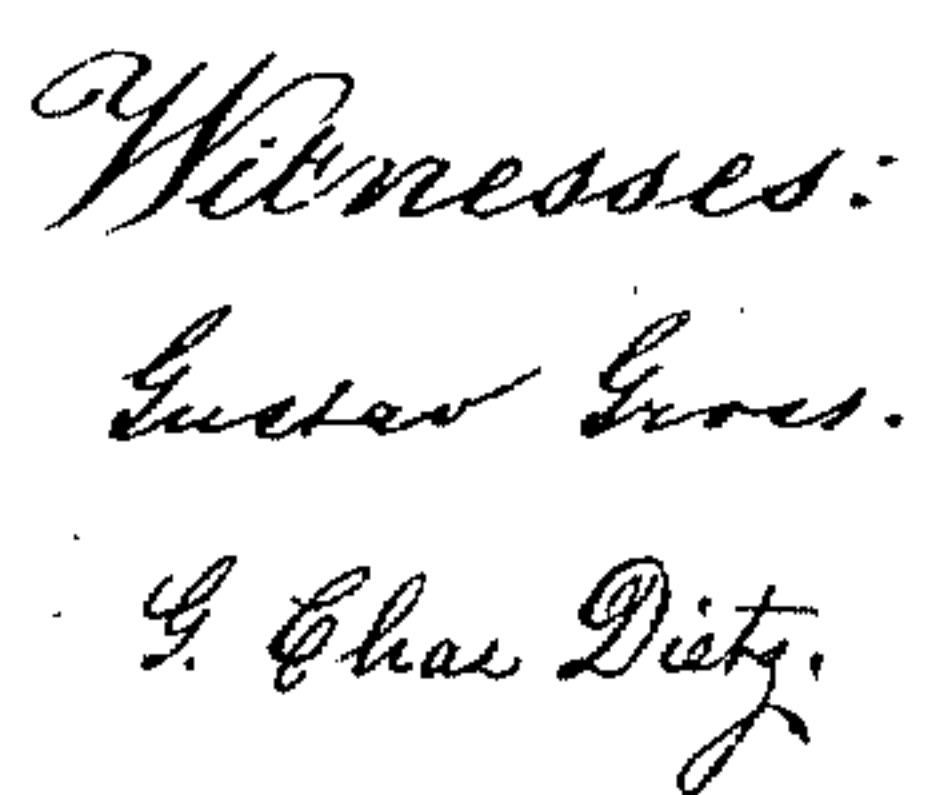 Witnesses:
Gustav Gross.
G. Chas Dietz.